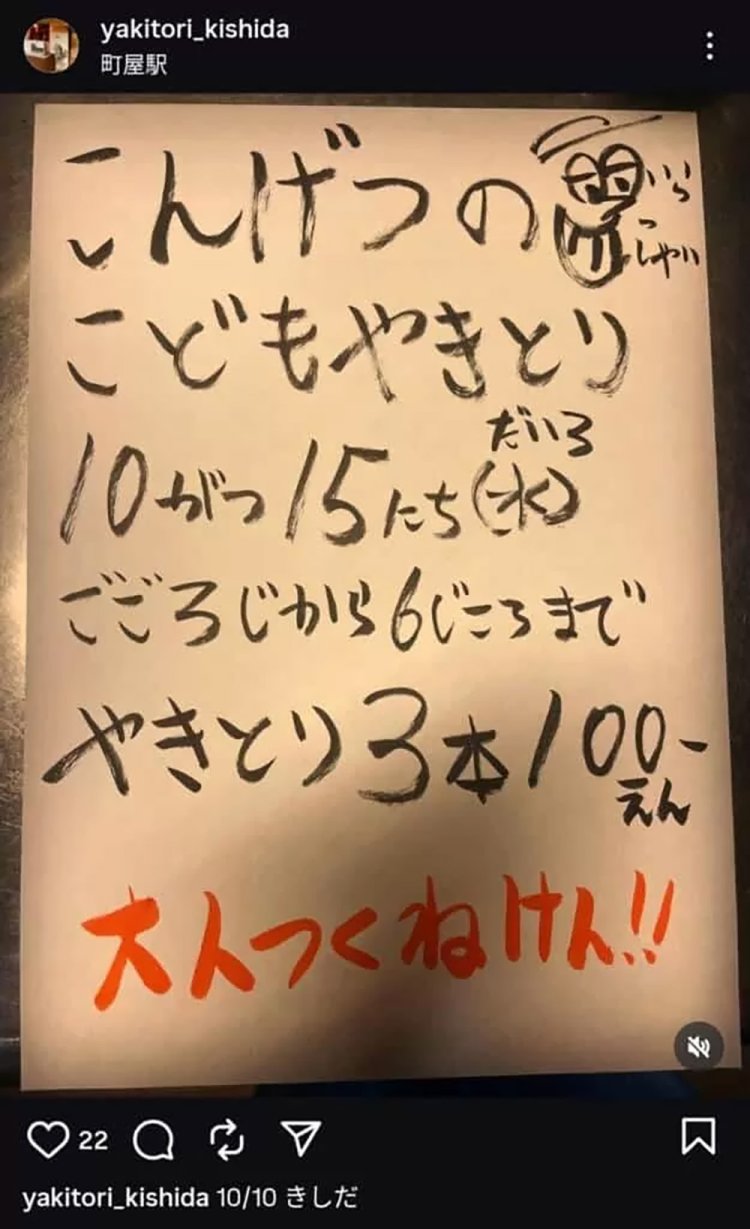 yakitori_kishida
町屋駅
こんげつの
いらっしゃい
こどもやきとり
だい3
10がつ15にち(水)
ごご3じから6じころまで
やきとり3本100-
えん
大人つくねけん!!
22
yakitori_kishida 10/10 きしだ